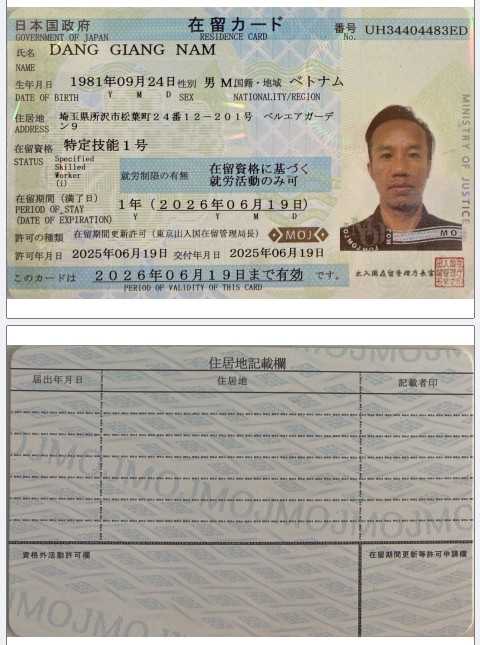 日本国政府 在留カード 番号 UH34404483ED
GOVERNMENT OF JAPAN RESIDENCE CARD No.
氏名 DANG GIANG NAM
NAME
生年月日 1981年09月24日 性別 男 M. 国籍・地域 ベトナム
DATE OF BIRTH Y M D SEX NATIONALITY/REGION
住居地 埼玉県所沢市松葉町24番12-201号 ベルエアガーデ
ADDRESS ン9
在留資格 特定技能1号
STATUS Specified
Skilled
Worker
(i)
就労制限の有無 在留資格に基づく
就労活動のみ可
在留期間(満了日) 1年(2026年06月19日)
PERIOD OF STAY Y Y M D
(DATE OF EXPIRATION)
許可の種類 在留期間更新許可(東京出入国在留管理局長)
MOJ
許可年月日 2025年06月19日 交付年月日 2025年06月19日
このカードは 2026年06月19日まで有効 です。
PERIOD OF VALIDITY OF THIS CARD
MINISTRY OF JUSTICE
出入国在留管理庁長官
住居地記載欄
届出年月日 住居地 記載者印
資格外活動許可欄 在留期間更新等許可申請欄
MOJMOJMOJ